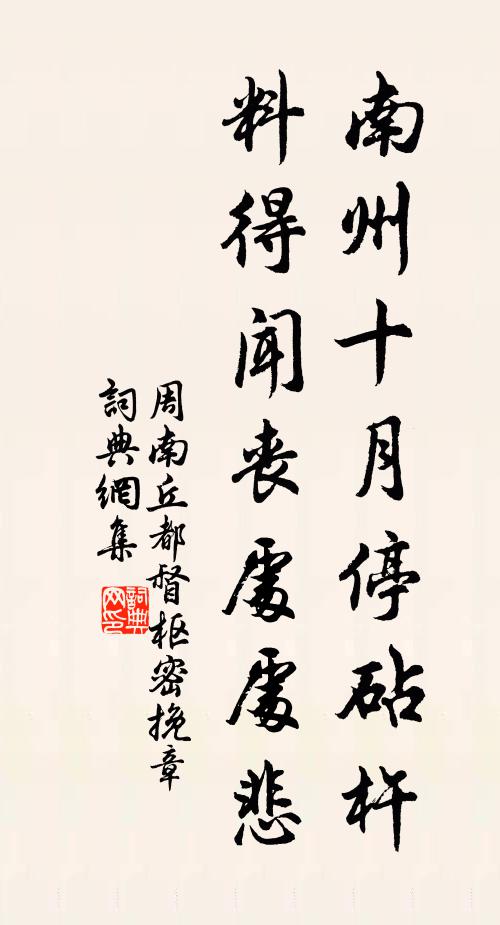 南州十月停砧杵
料得闻丧處處悲
周南丘都督枢密挽章
詞典網集
詞典网印